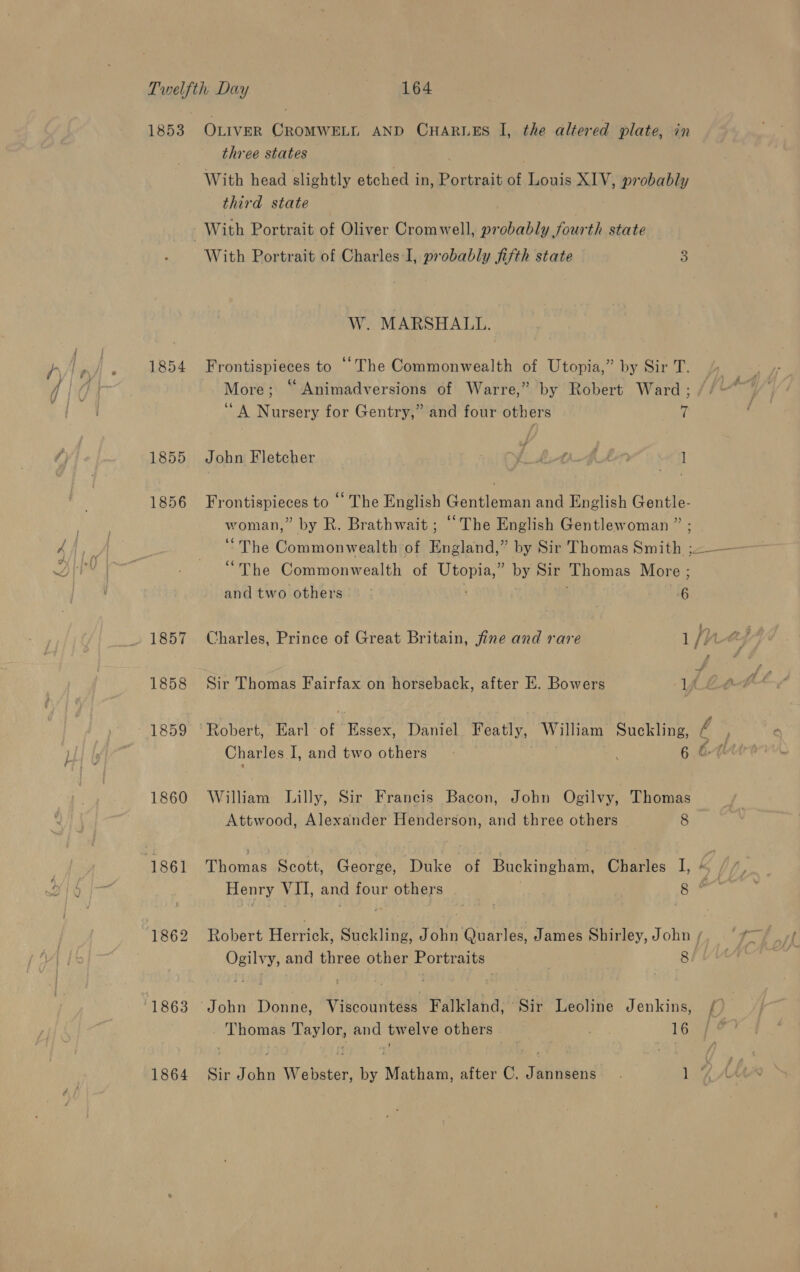 Twelfth Day 164
1853 OLIVER CROMWELL AND CHARLES I, the altered plate, in
three states
With head slightly etched in, Portrait of Louis XIV, probably
third state
With Portrait of Oliver Cromwell, probably fourth state
With Portrait of Charles I, probably fifth state 3
W. MARSHALL.
1854 Frontispieces to “The Commonwealth of Utopia,” by Sir T.
More; “Animadversions of Warre,” by Robert Ward;
“A Nursery for Gentry,” and four others 7
1855 John Fletcher 1
1856 Frontispieces to “The English Gentleman and English Gentle-
woman,” by R. Brathwait; “The English Gentlewoman”;
“The Commonwealth of England,” by Sir Thomas Smith;
“The Commonwealth of Utopia,” by Sir Thomas More;
and two others 6
1857 Charles, Prince of Great Britain, fine and rare 1
1858 Sir Thomas Fairfax on horseback, after E. Bowers 1
1859 Robert, Earl of Essex, Daniel Featly, William Suckling,
Charles I, and two others 6
1860 William Lilly, Sir Francis Bacon, John Ogilvy, Thomas
Attwood, Alexander Henderson, and three others 8
1861 Thomas Scott, George, Duke of Buckingham, Charles I,
Henry VII, and four others 8
1862 Robert Herrick, Suckling, John Quarles, James Shirley, John
Ogilvy, and three other Portraits 8
1863 John Donne, Viscountess Falkland, Sir Leoline Jenkins,
Thomas Taylor, and twelve others 16
1864 Sir John Webster, by Matham, after C. Jannsens . 1